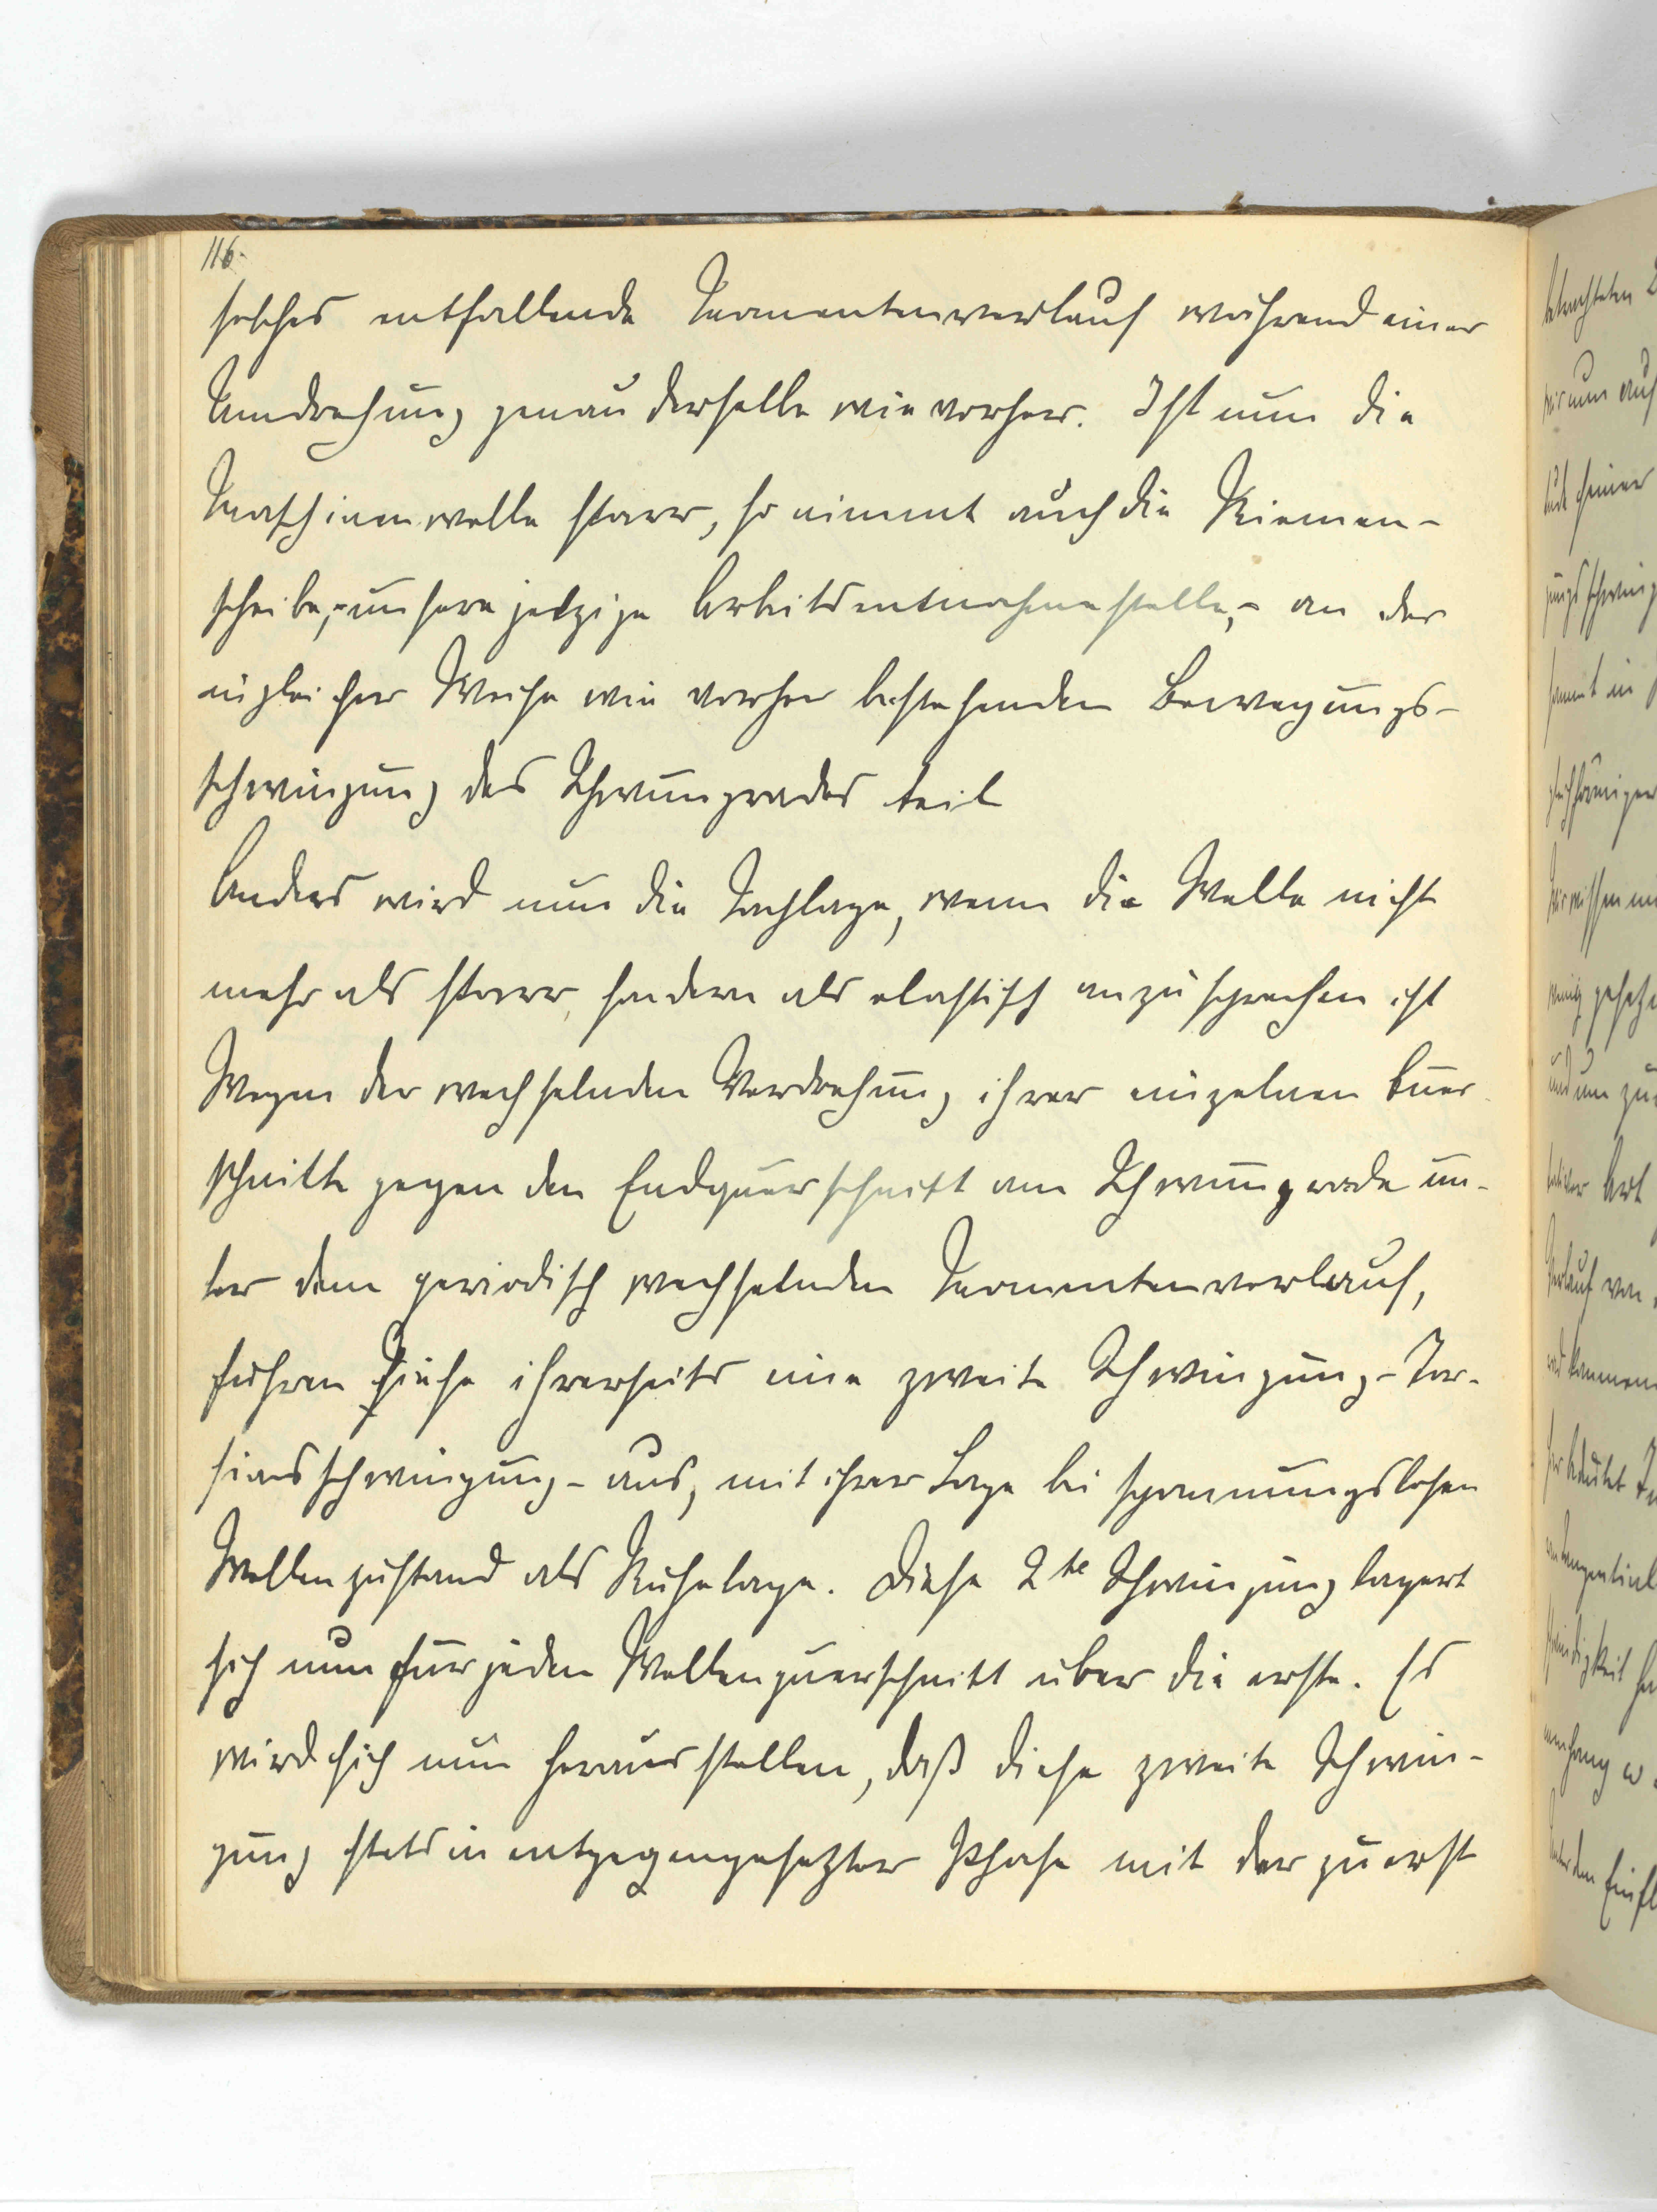 116.
solches entfallende Momentenverlauf während einer
Umdrehung genau derselbe wie vorher. Ist nun die
Maschinenwelle starr, so nimmt auch die Riemen-
scheibe,- unsere jetzige Arbeitsentnahmestelle,- an der
in gleicher Weise wie vorher bestehenden Bewegungs-
schwingung des Schwungrades teil
Anders wird nun die Sachlage, wenn die Welle nicht
mehr als starr, sondern als elastisch anzusprechen ist
Wegen der wechselnden Verdrehung ihrer einzelnen Quer-
schnitte gegen den Endquerschnitt am Schwungrade un-
ter dem periodisch wechselnden Momentenverlauf,
führen diese ihrerseits eine zweite Schwingung - Tor-
sionsschwingung - aus, mit ihrer Lage bei spannungslosen
Wellenzustand als Ruhelage. Diese 2te Schwingung lagert
sich nun für jeden Wellenquerschnitt über die erste. Es
wird sich nun herausstellen, daß diese zweite Schwin-
gung stets in entgegengesetzter Phase mit der zuerst
betrachteten
wir nun auf
seiner
schwing
samt in
gleichförmigen
Wir wissen
gesetz
und um zu
Art
Verlauf von
kommen
bedeutet
tangential
w
unter dem Einfl